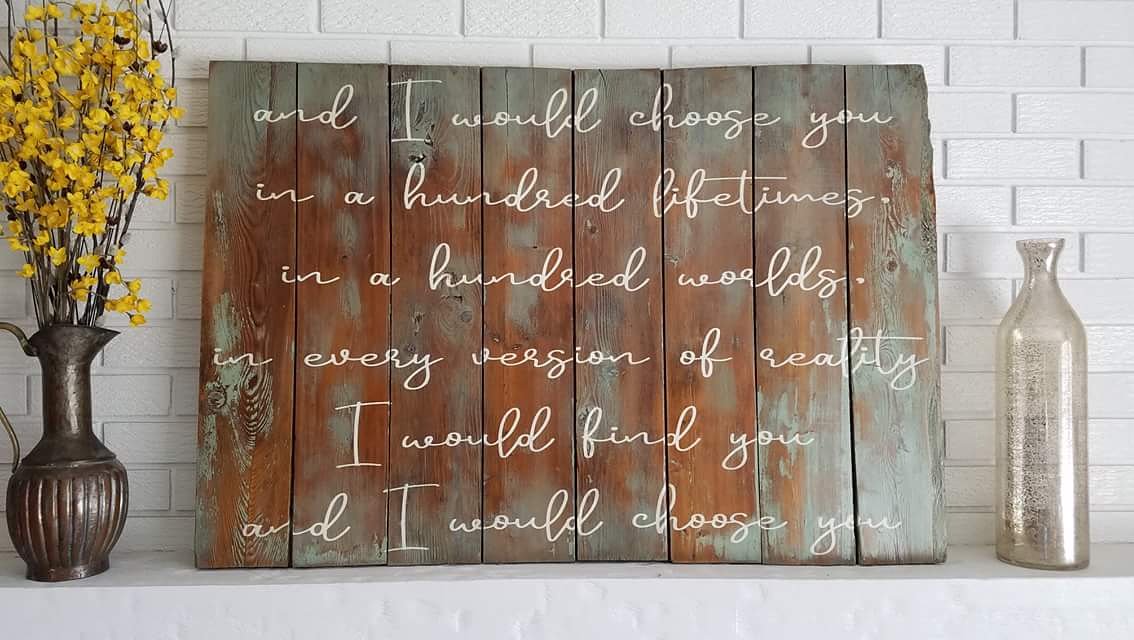 and I would choose you
in a hundred lifetimes.
in a hundred worlds.
in every version of reality
I would find you
and I would choose you